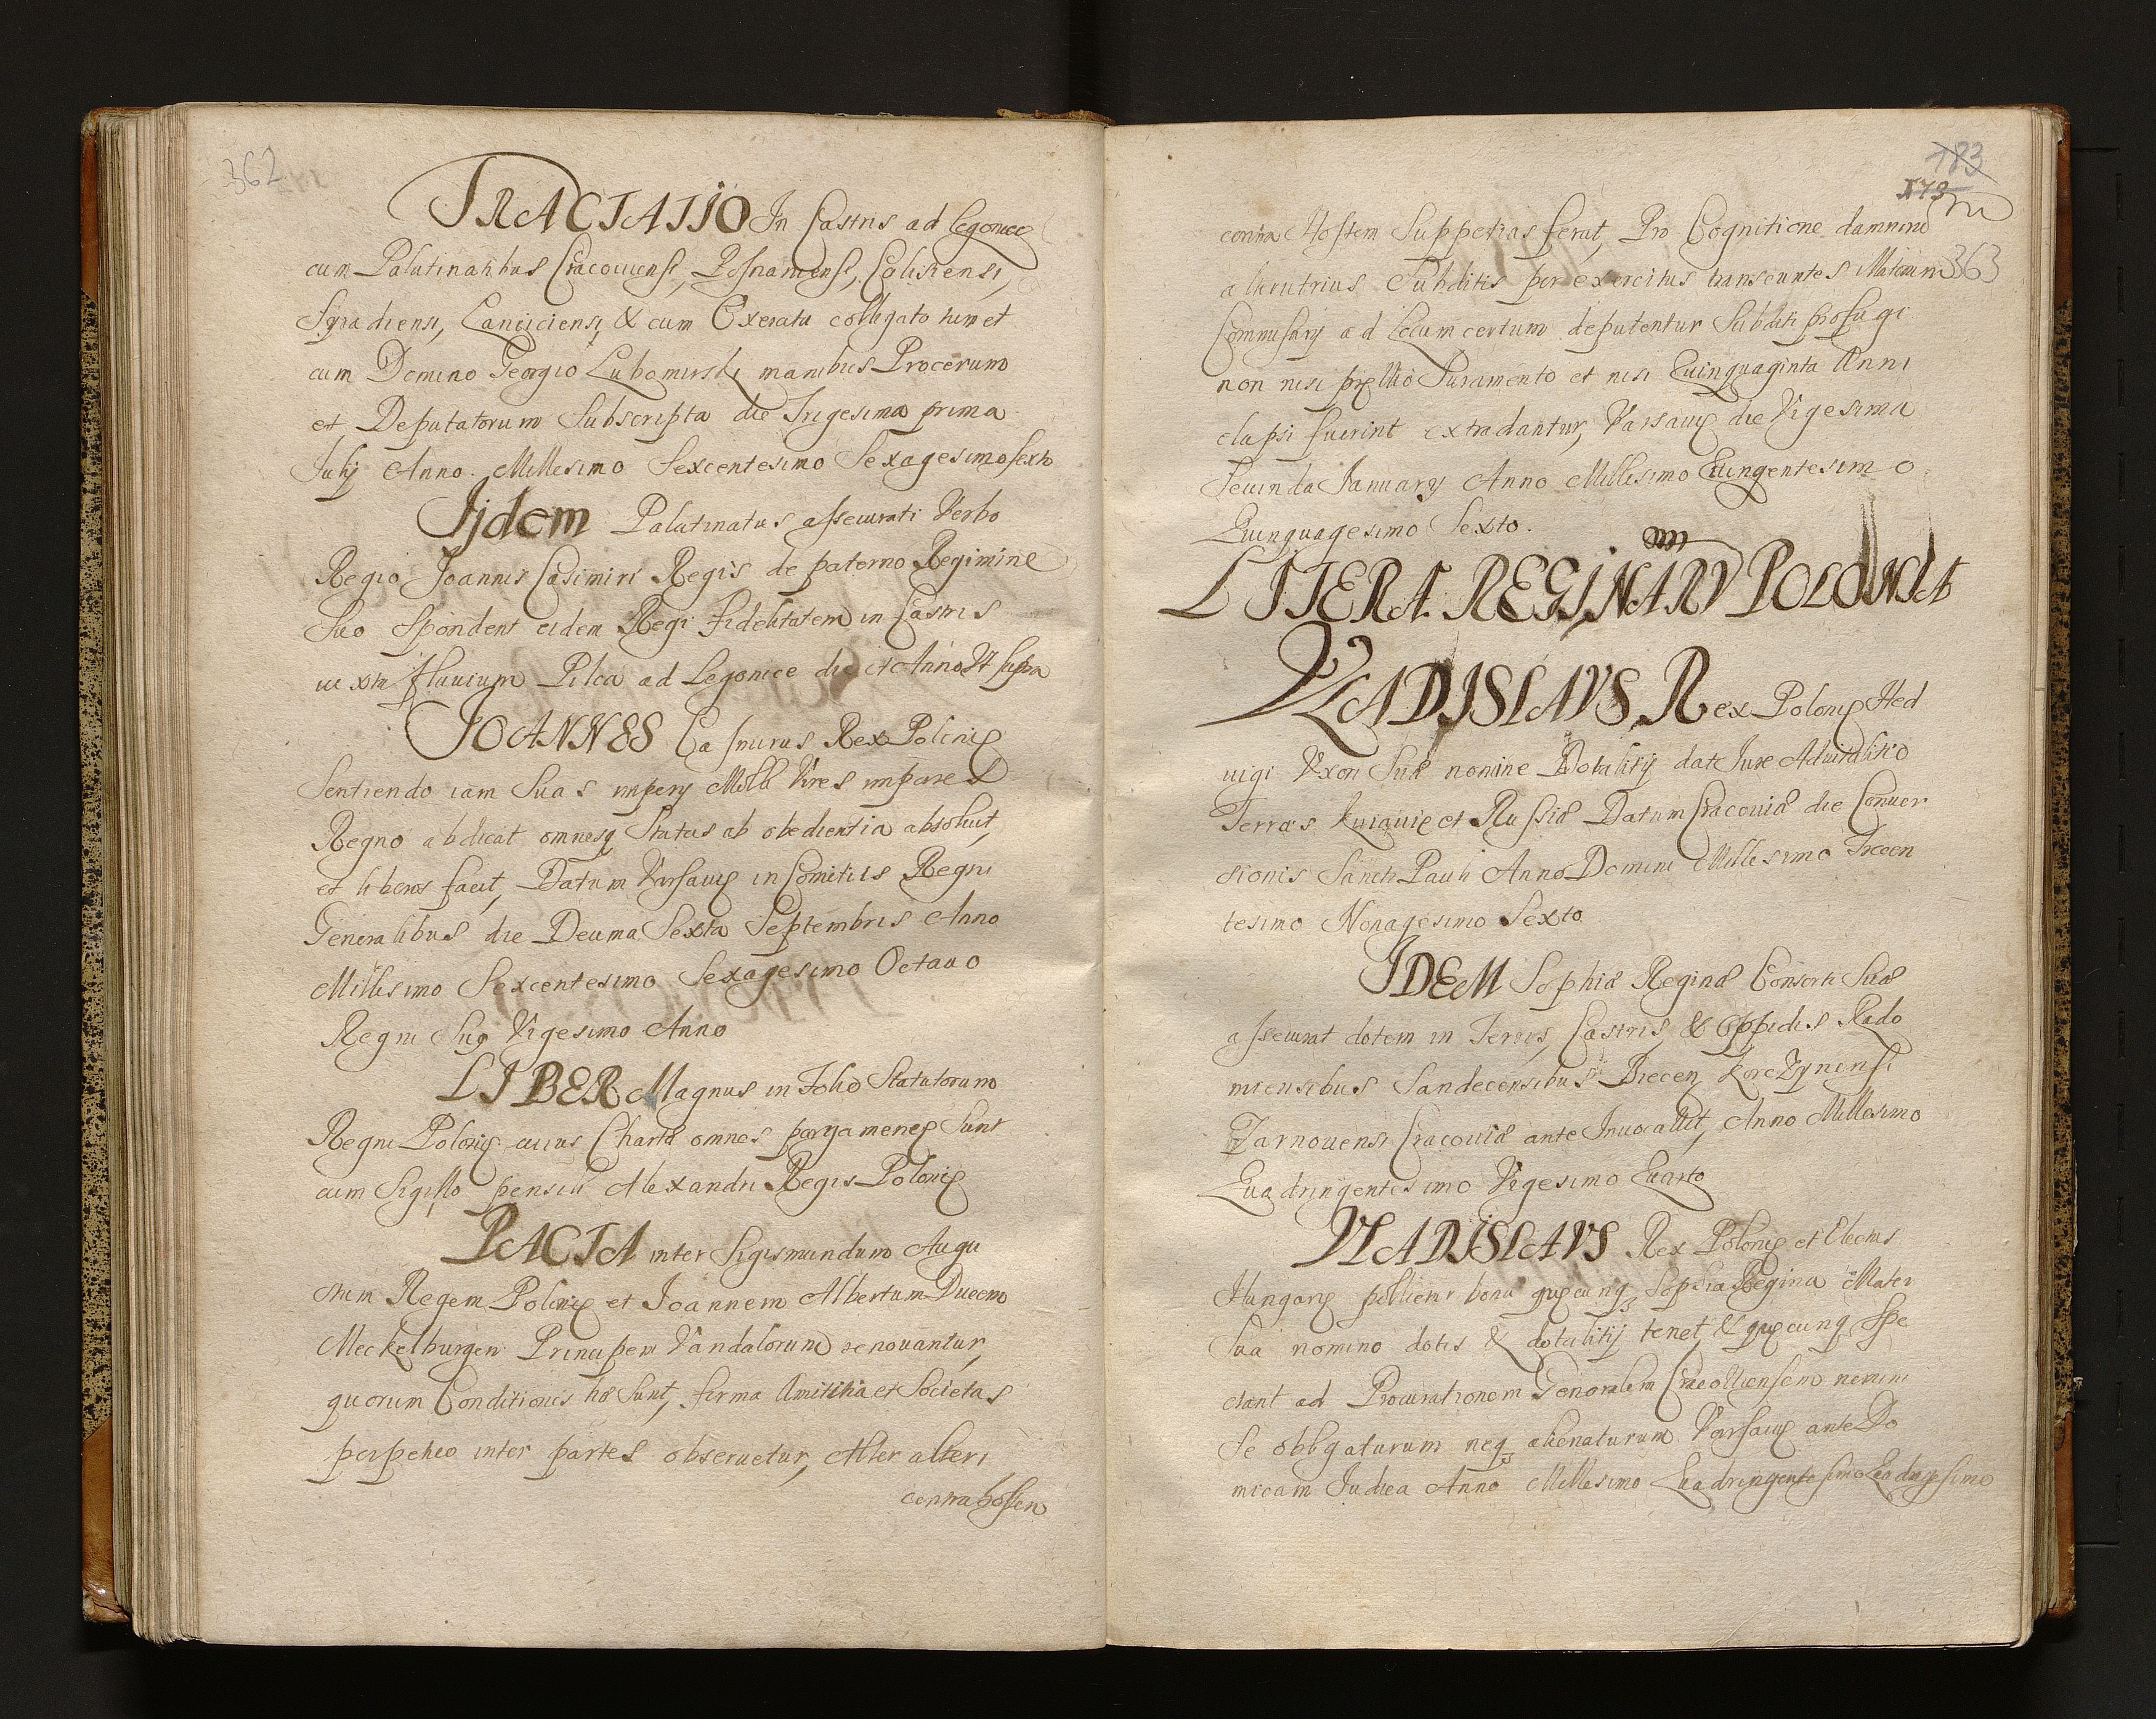 362
TRACTATIO In Castris ad Legonice
cum Palatinatibus Cracouiensi, Posnaniensi, Calisiensi,
Syradiensi, Lanciciensi, & cum Exeratu colligato tum et
cum Domino Georgio Lubomirski manibus Procerum
et Deputatorum Subscripta die Trigesima prima
Julij Anno Millesimo Sexcentesimo Sexagesimo sexto
Ijdem Palatinatus assecurati Verbo
Regio Joannis Casimiri Regis de paterno Regimine
Suo Spondent eidem Regi fidelitatem in Castris
iuxta fluuium Pilca ad Legonice die et Anno Vt supra
JOANNES Casimirus Rex Polonię
Sentiendo iam Suas imperij Moli Vires impares
Regno abdicat omnesq Status ab obedientia absoluit,
et liberos facit, Datum Varsauię in Comitiis Regni
Generalibus die Decima Sexta Septembris Anno
Millesimo Sexcentesimo Sexagesimo Octauo
Regni Sui Vigesimo Anno
LIBER Magnus in Folio Statutorum
Regni Polonię cuius Charta omnes pargamenę Sunt
cum Sigillo pensili Alexandri Regis Polonię
PACTA inter Sigismundum Augu
stum Regem Polonię et Joannem Albertum Ducem
Meckelburgen Principem Vandalorum renouantur,
quorum Conditiones hæ Sunt, firma Amititia et Societas
perpetuo inter partes obseruetur, Alter alteri
contra hostem
183
173
363
contra Hostem Suppetias ferat, Pro Cognitione damnorum
ab utrius Subditis per exercitus transeuntes illatorum
Commissarij ad Locum certum deputentur Subditi profugi
non nisi pręuio Juramento et nisi Quinquaginta Anni
elapsi fuerint extradantur, Varsauię die Vigesima
Secunda January Anno Millesimo Quingentesimo
Quinquagesimo Sexto.
LITERA REGINARV POLONIÆ
VLADISLAVS Rex Polonię Hed
uigi Vxori Suæ nomine Dotalitij dat Jure Aduitalitio
Terras Kuiauię et Russiæ Datum Cracouiæ die Conuer
sionis Sancti Pauli Anno Domini Millesimo Trecen
tesimo Nonagesimo Sexto
IDEM Sophiæ Reginæ Consorti Suæ
assecurat dotem in Terris, Castris, & Oppidis Rado
miensibus Sandecensibus Korczynensi
Zarnouensi Cracouiæ ante Inuocauit, Anno Millesimo
Quadringentesimo Vigesimo Quarto
VLADISLAVS Rex Polonię et Electus
Hungarię pollicetur bona quęcunq Sophia Regina Mater
Sua nomine dotis & dotalitij tenet, & quęcunq Spe
ctant ad Procurationem Generalem Cracouiensem nemini
Se obligaturum neq alienaturum Varsauię ante Do
micam Judica Anno Millesimo Quadringentesimo Quadragesimo